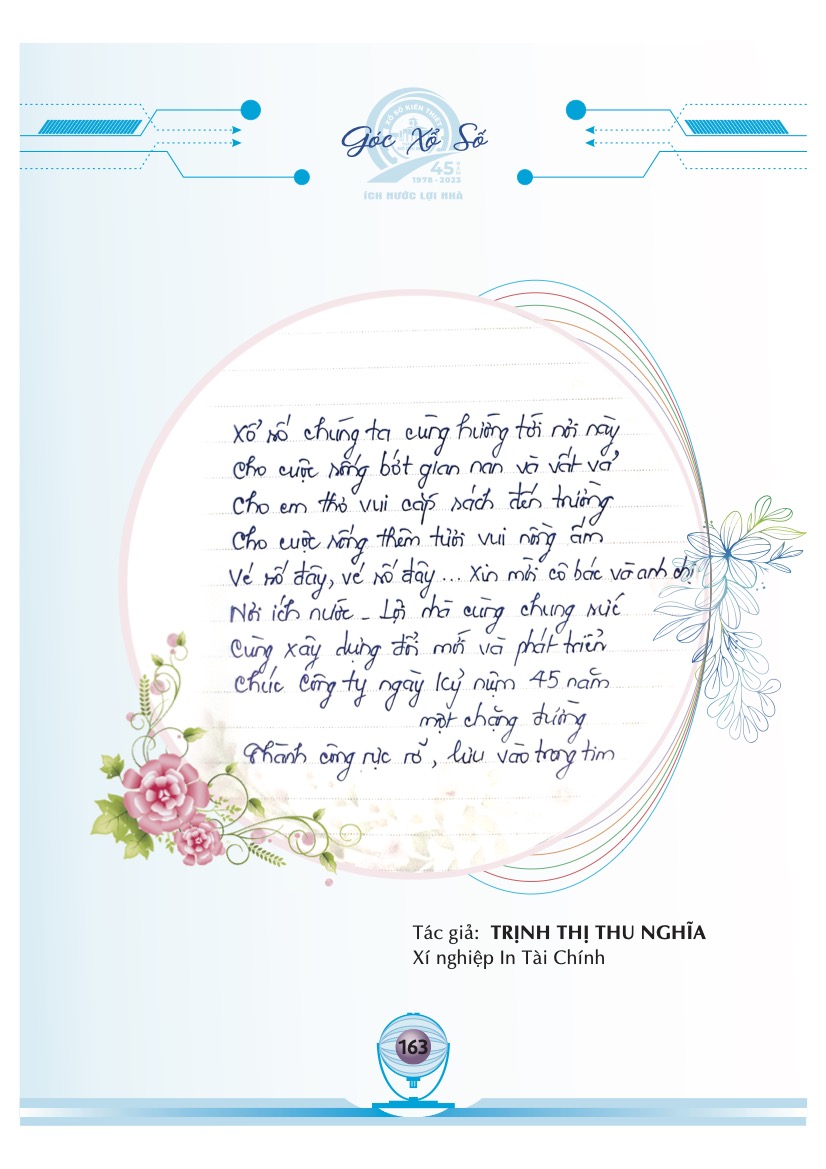 XỔ SỐ KIẾN THIẾT
Góc Xổ Số
45 NĂM
1978 - 2023
ÍCH NƯỚC LỢI NHÀ
Xổ số chúng ta cùng hướng tới nơi này
Cho cuộc sống bớt gian nan và vất vả
Cho em thơ vui cắp sách đến trường
Cho cuộc sống thêm tươi vui nồng ấm
Vé số đây, vé số đây... Xin mời cô bác và anh chị
Nơi ích nước - Lợi nhà cùng chung sức
Cùng xây dựng đổi mới và phát triển
Chúc Công ty ngày kỷ niệm 45 năm
một chặng đường
Thành công rực rỡ, lưu vào trong tim
Tác giả: TRỊNH THỊ THU NGHĨA
Xí nghiệp In Tài Chính
163